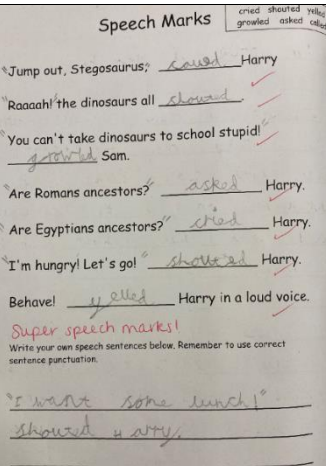 Speech Marks
cried shouted yelled
growled asked called
"Jump out, Stegosaurus," Harry
"Raaaah!" the dinosaurs all shoured.
"You can't take dinosaurs to school stupid!"
growled Sam.
"Are Romans ancestors?" asked Harry.
"Are Egyptians ancestors?" cried Harry.
"I'm hungry! Let's go!" shouted Harry.
Behave! yelled Harry in a loud voice.
Super speech marks!
Write your own speech sentences below. Remember to use correct
sentence punctuation.
"I want some lunch!"
shoured Harry.